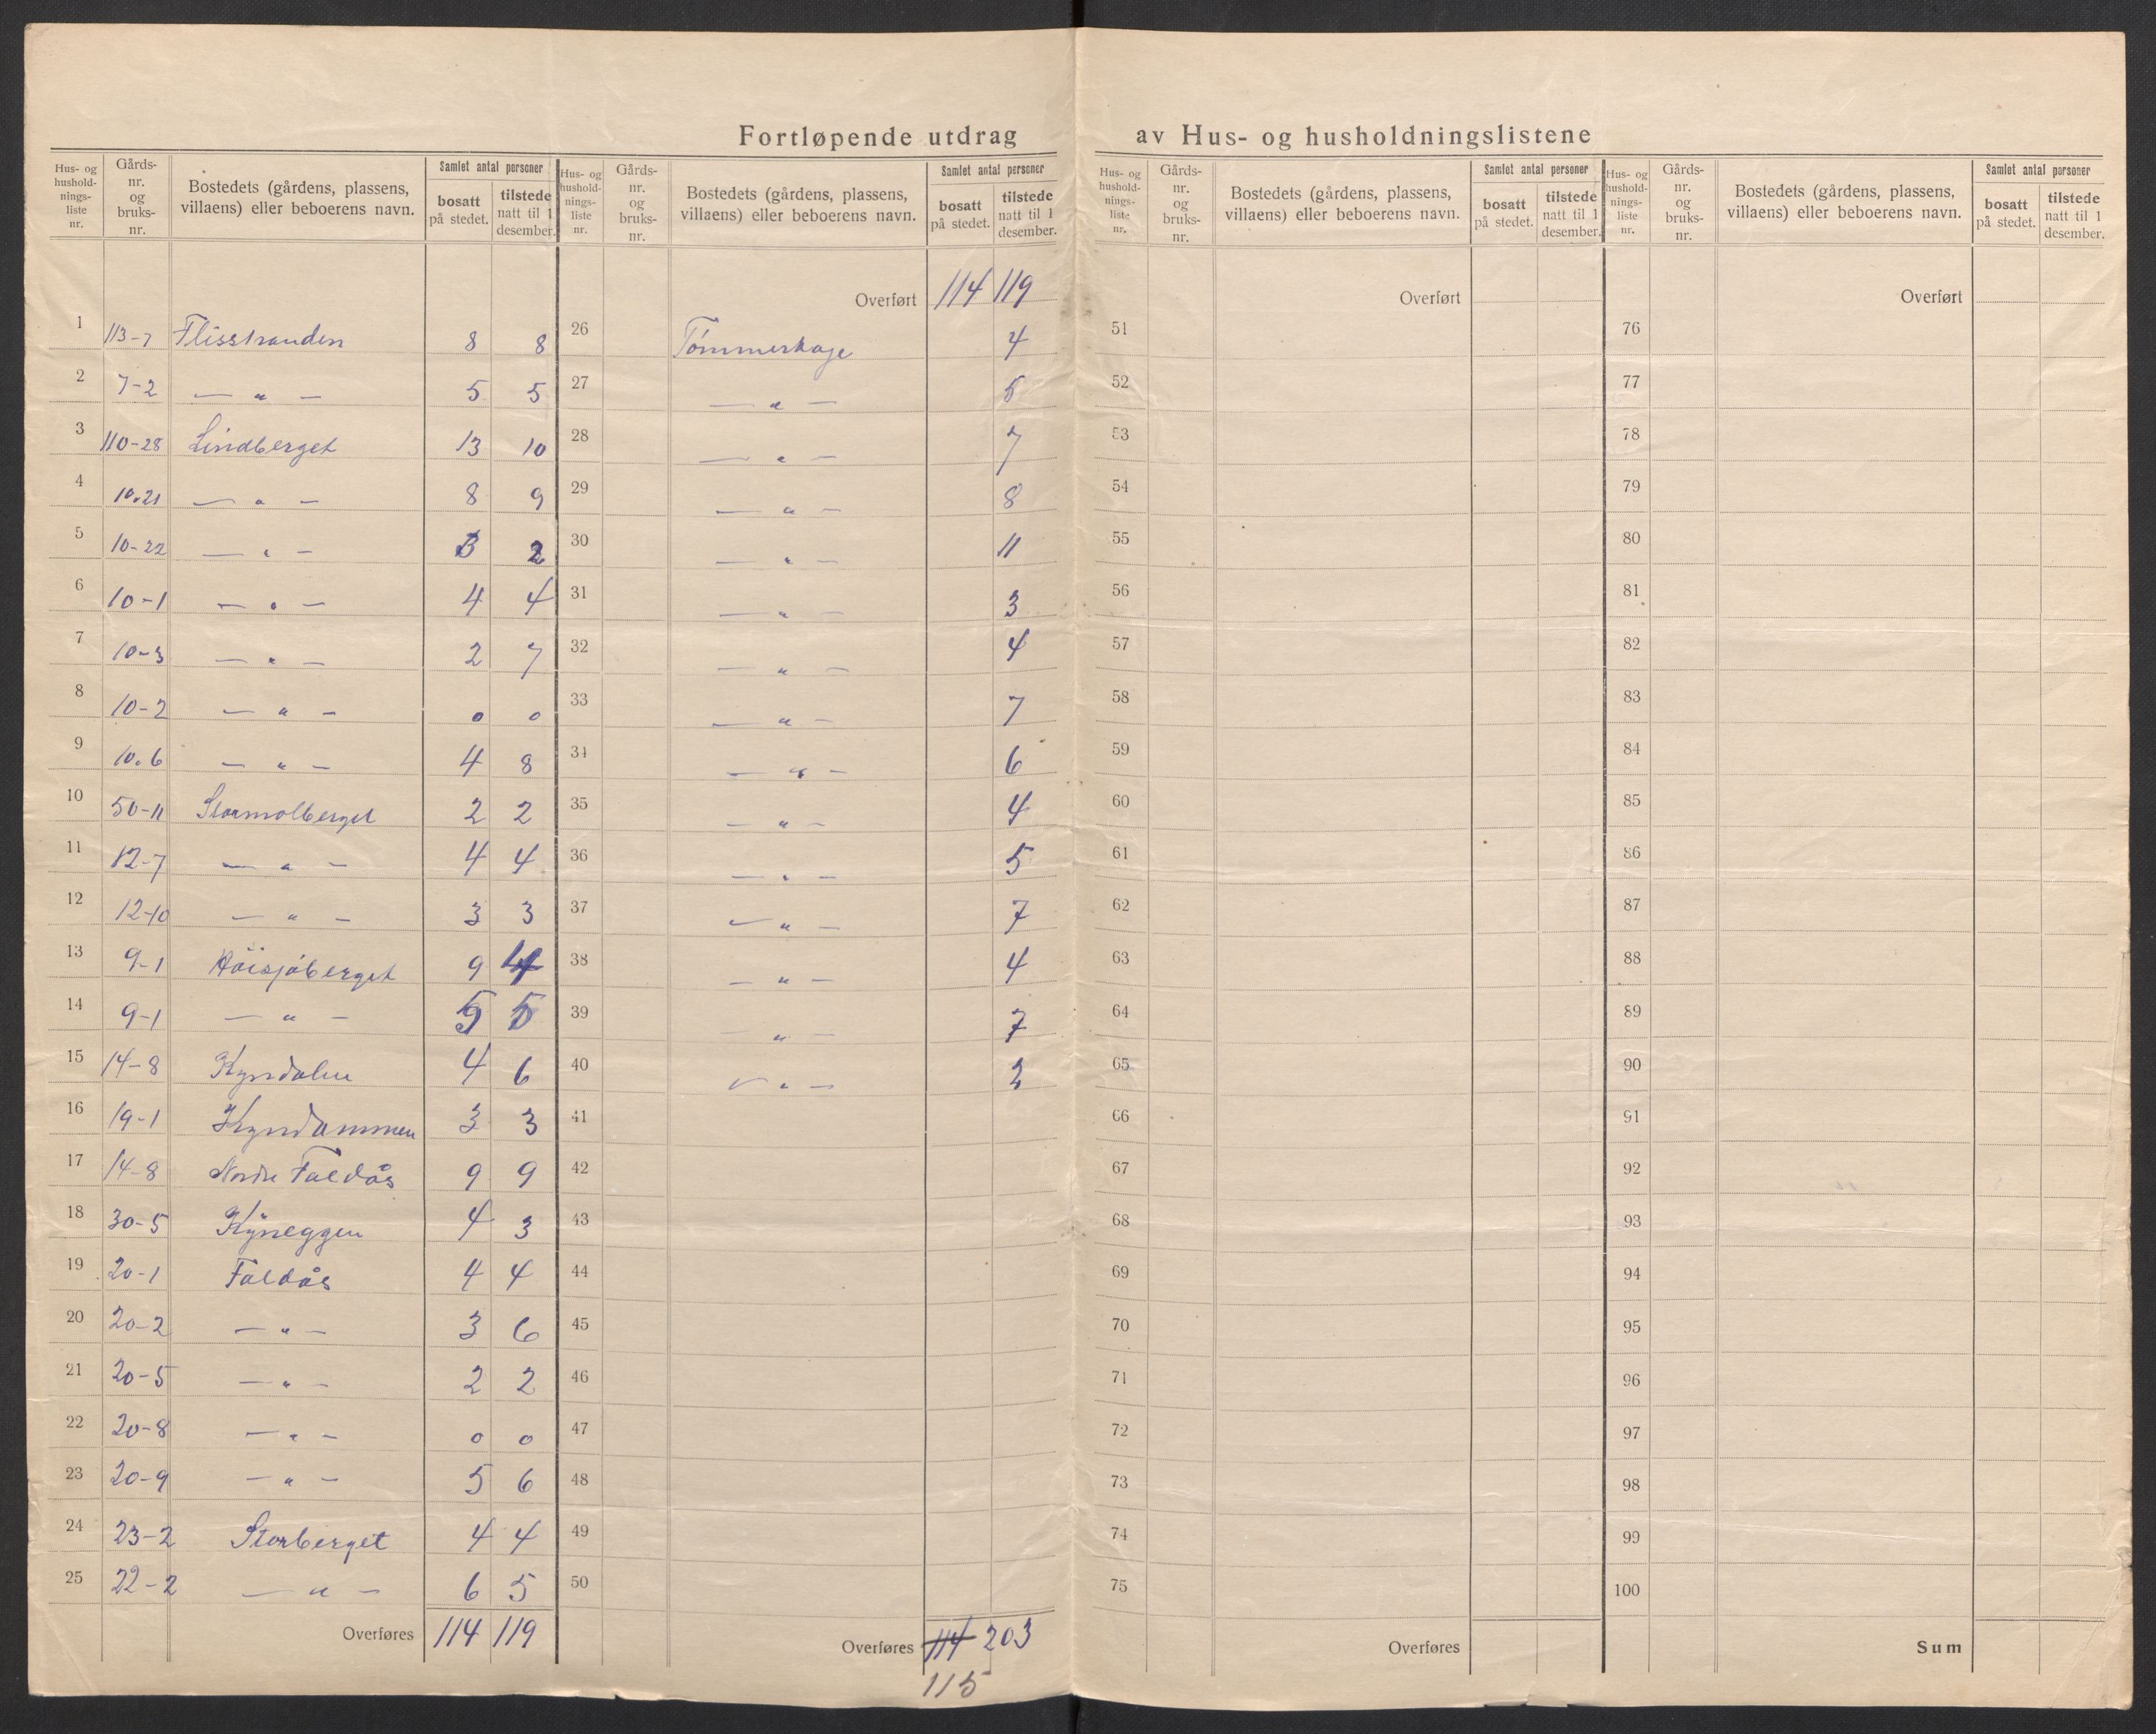 Fortløpende utdrag av Hus- og husholdningslistene
Hus- og husholdnings- liste nr. Gårds- nr. og bruks- nr. Bostedets (gårdens, plassens, villaens) eller beboerens navn. Samlet antal personer bosatt på stedet. tilstede natt til 1 desember.
1 113-7 Flisstranden 8 8
2 7-2 — „ — 5 5
3 110-28 Lindberget 13 10
4 10.21 — „ — 8 9
5 10-22 — „ — 3 2
6 10-1 — „ — 4 4
7 10-3 — „ — 2 7
8 10-2 — „ — 0 0
9 10.6 — „ — 4 8
10 50-11 Stormolberget 2 2
11 12-7 — „ — 4 4
12 12-10 — „ — 3 3
13 9-1 Høisjøberget 9 4
14 9-1 — „ — 5 5
15 14-8 Kyndalen 4 6
16 19-1 Kyndammen 3 3
17 14-8 Nordre Faldås 9 9
18 30-5 Kyneggen 4 3
19 20-1 Faldås 4 4
20 20-2 — „ — 3 6
21 20-5 — „ — 2 2
22 20-8 — „ — 0 0
23 20-9 — „ — 5 6
24 23-2 Storberget 4 4
25 22-2 — „ — 6 5
Overføres 114 119
Hus- og husholdnings- liste nr. Gårds- nr. og bruks- nr. Bostedets (gårdens, plassens, villaens) eller beboerens navn. Samlet antal personer bosatt på stedet. tilstede natt til 1 desember.
Overført 114 119
26 Tømmerkoje 4
27 — „ — 5
28 — „ — 7
29 — „ — 8
30 — „ — 11
31 — „ — 3
32 — „ — 4
33 — „ — 7
34 — „ — 6
35 — „ — 4
36 — „ — 5
37 — „ — 7
38 — „ — 4
39 — „ — 7
40 — „ — 2
41
42
43
44
45
46
47
48
49
50
Overføres 114 203
115
Hus- og husholdnings- liste nr. Gårds- nr. og bruks- nr. Bostedets (gårdens, plassens, villaens) eller beboerens navn. Samlet antal personer bosatt på stedet. tilstede natt til 1 desember.
Overført
51
52
53
54
55
56
57
58
59
60
61
62
63
64
65
66
67
68
69
70
71
72
73
74
75
Overføres
Hus- og husholdnings- liste nr. Gårds- nr. og bruks- nr. Bostedets (gårdens, plassens, villaens) eller beboerens navn. Samlet antal personer bosatt på stedet. tilstede natt til 1 desember.
Overført
76
77
78
79
80
81
82
83
84
85
86
87
88
89
90
91
92
93
94
95
96
97
98
99
100
Sum